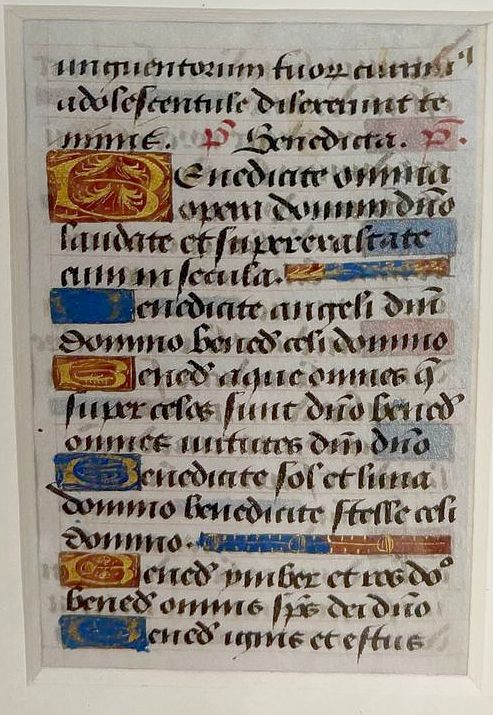 unguentorum tuorꝝ currimꝰ
adolescentule dilexerunt te
nimis. p̄s Benedicta. p̄s.
Benedicite omnia
opera domini dn̄o
laudate et superexaltate
eum in secula.
Benedicite angeli dn̄i
domino bened̄ celi domino
Bened̄ aque omnes q̄
super celos sunt dn̄o bened̄
omnes uirtutes dn̄i dn̄o
Benedicite sol et luna
domino benedicite stelle celi
domino.
Bened̄ ymber et ros do°
bened̄ omnis sp̄s dei dn̄o
Bened̄ ignis et estus